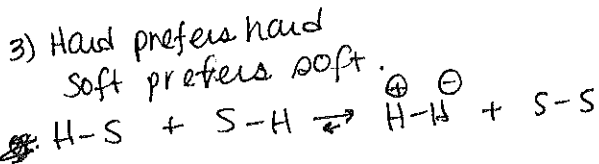 3) Hard prefers hard
Soft prefers soft.
⊕ ⊖
H-S + S-H ⇌ H-H + S-S